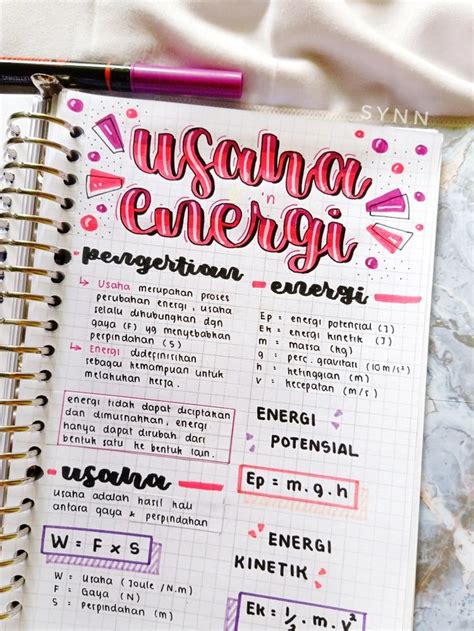 SYNN
usaha
n
energi
pengertian
→ Usaha merupakan proses
perubahan energi, usaha
selalu dihubungkan dgn
gaya (F) yg menyebabkan
perpindahan (S)
→ Energi didefinisikan
sebagai kemampuan untuk
melakukan kerja.
energi tidak dapat diciptakan
dan dimusnahkan, energi
hanya dapat dirubah dari
bentuk satu ke bentuk lain.
usaha
usaha adalah hasil kali
antara gaya & perpindahan
W = F x S
W = Usaha (Joule / N.m)
F = Gaya (N)
S = perpindahan (m)
energi
Ep = energi potensial (J)
Ek = energi kinetik (J)
m = massa (kg)
g = perc. gravitasi (10 m/s²)
h = ketinggian (m)
v = kecepatan (m/s)
ENERGI
POTENSIAL
Ep = m.g.h
ENERGI
KINETIK
Ek = 1/2 . m . v²